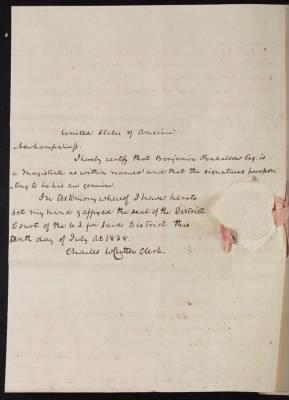 United States of America
Newhampshire ss.
I hereby certify that Benjamin Penhallow Esq. is
a Magistrate as within named and that the signatures purpor
-ting to be his are genuine.
In testimony whereof I have hereto
set my hand & affixed the seal of the District
Court of the U.S. for said District this
tenth day of July AD 1838.
Charles W Cutter Clerk.